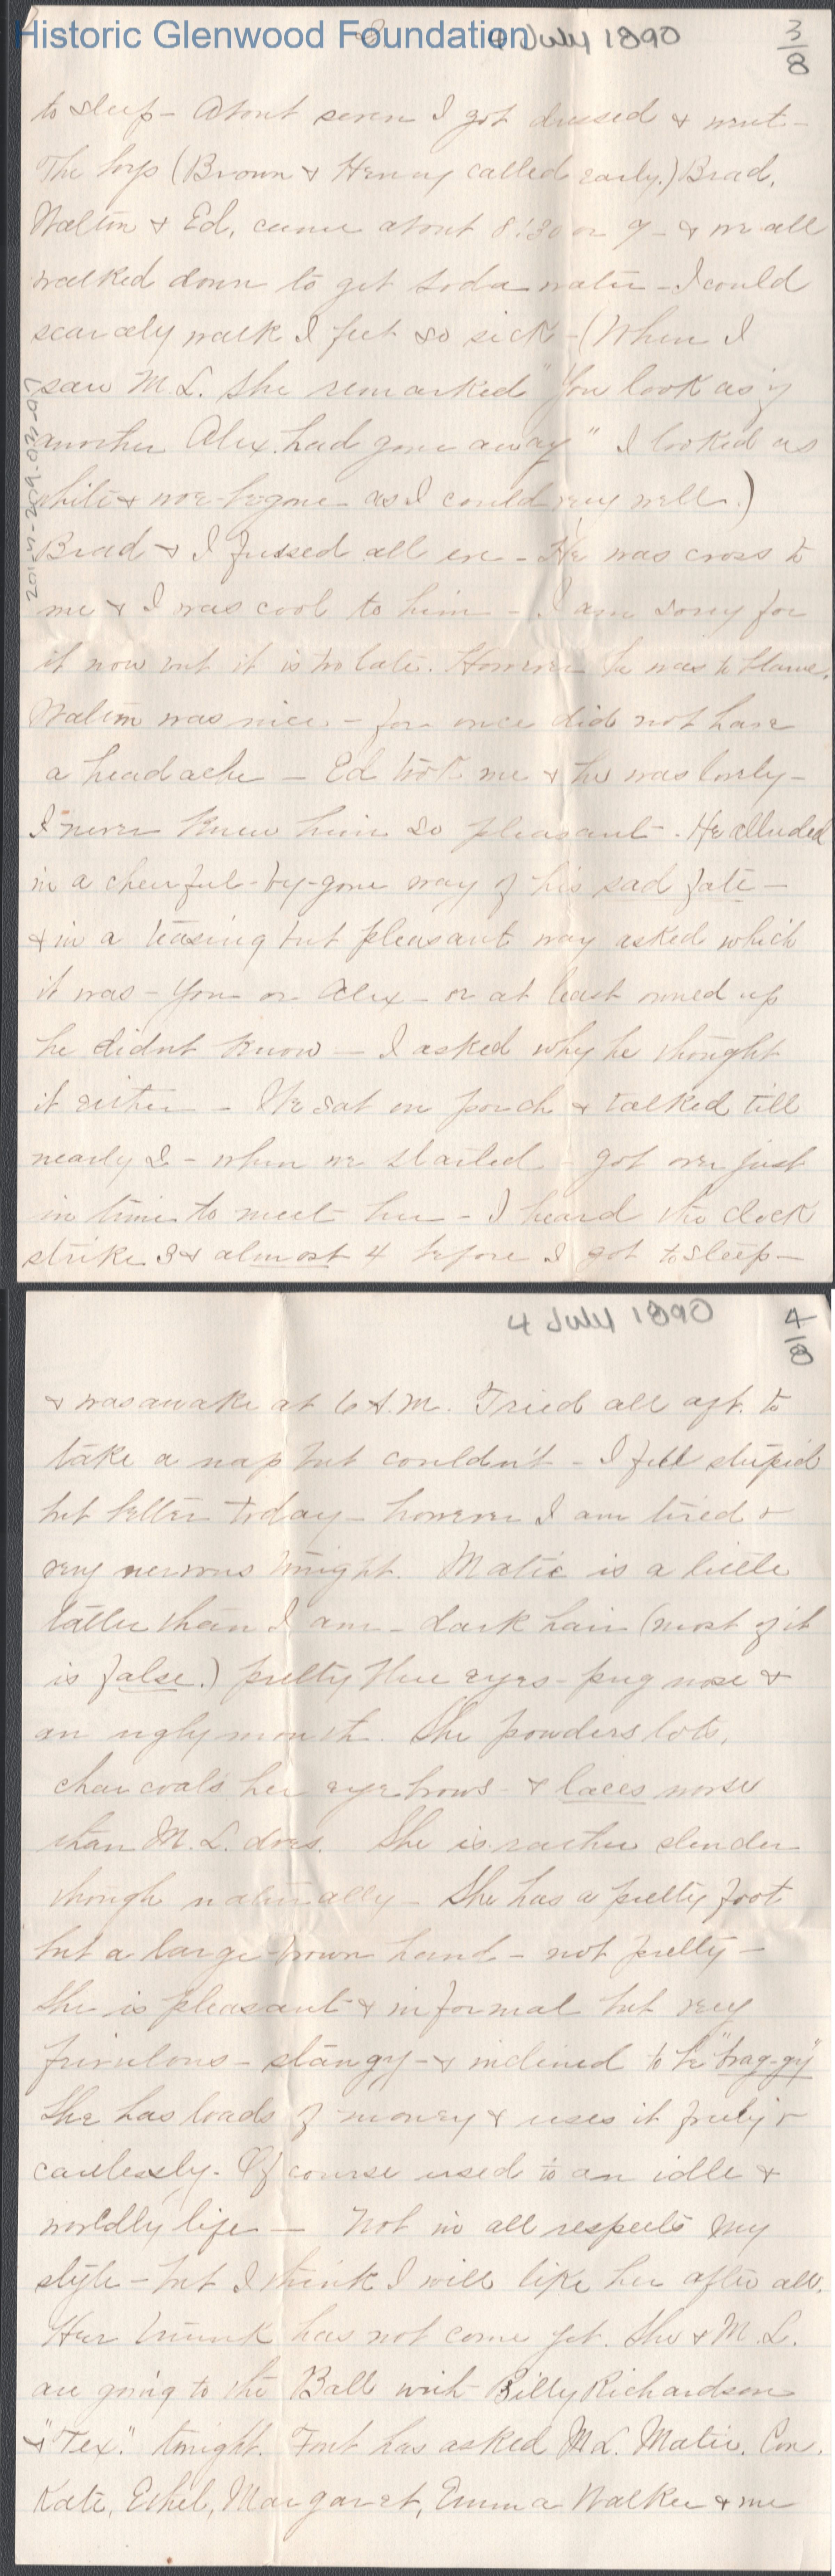 Historic Glenwood Foundation
4 July 1890
3/8
to sleep - About seven I got dressed & went -
The boys (Brown & Henry called early.) Brad,
Walton & Ed, came about 8:30 or 9 - & we all
walked down to get soda water - I could
scarcely walk I felt so sick - (When I
saw M.L. she remarked "You look as if
another Alex. had gone away" I looked as
white & woe-begone as I could very well.)
Brad & I fussed all eve - He was cross to
me & I was cool to him - I am sorry for
it now but it is too late. However he was to blame.
Walton was nice - for once did not have
a headache - Ed took me & he was lovely -
I never knew him so pleasant - He alluded
in a cheerful-by-gone way of his sad fate -
& in a teasing but pleasant way asked which
it was - You or Alex - or at least owned up
he didnt know - I asked why he thought
it either - We sat on porch & talked till
nearly 2 - when we started - got over just
in time to meet her - I heard the clock
strike 3 & almost 4 before I got to sleep -
4 July 1890
4/8
& was awake at 6 A.M. Tried all aft. to
take a nap but couldn't - I feel stupid
but better today - however I am tired &
very nervous tonight. Matie is a little
taller than I am - dark hair (most of it
is false.) pretty blue eyes - pug nose &
an ugly mouth. She powders lots,
charcoals her eyebrows - & laces worse
than M.L. does. She is rather slender
though naturally - She has a pretty foot
but a large brown hand - not pretty -
She is pleasant & informal but very
frivulous - slangy - & inclined to be "brag-gy"
She has loads of money & uses it freely &
carelessly. Of course used to an idle &
worldly life - Not in all respects my
style - but I think I will like her after all.
Her trunk has not come yet. She & M.L.
are going to the Ball with Billy Richardson
& "Tex." tonight. Font has asked M.L. Matie, Con.
Kate, Ethel, Margaret, Emma Walker & me